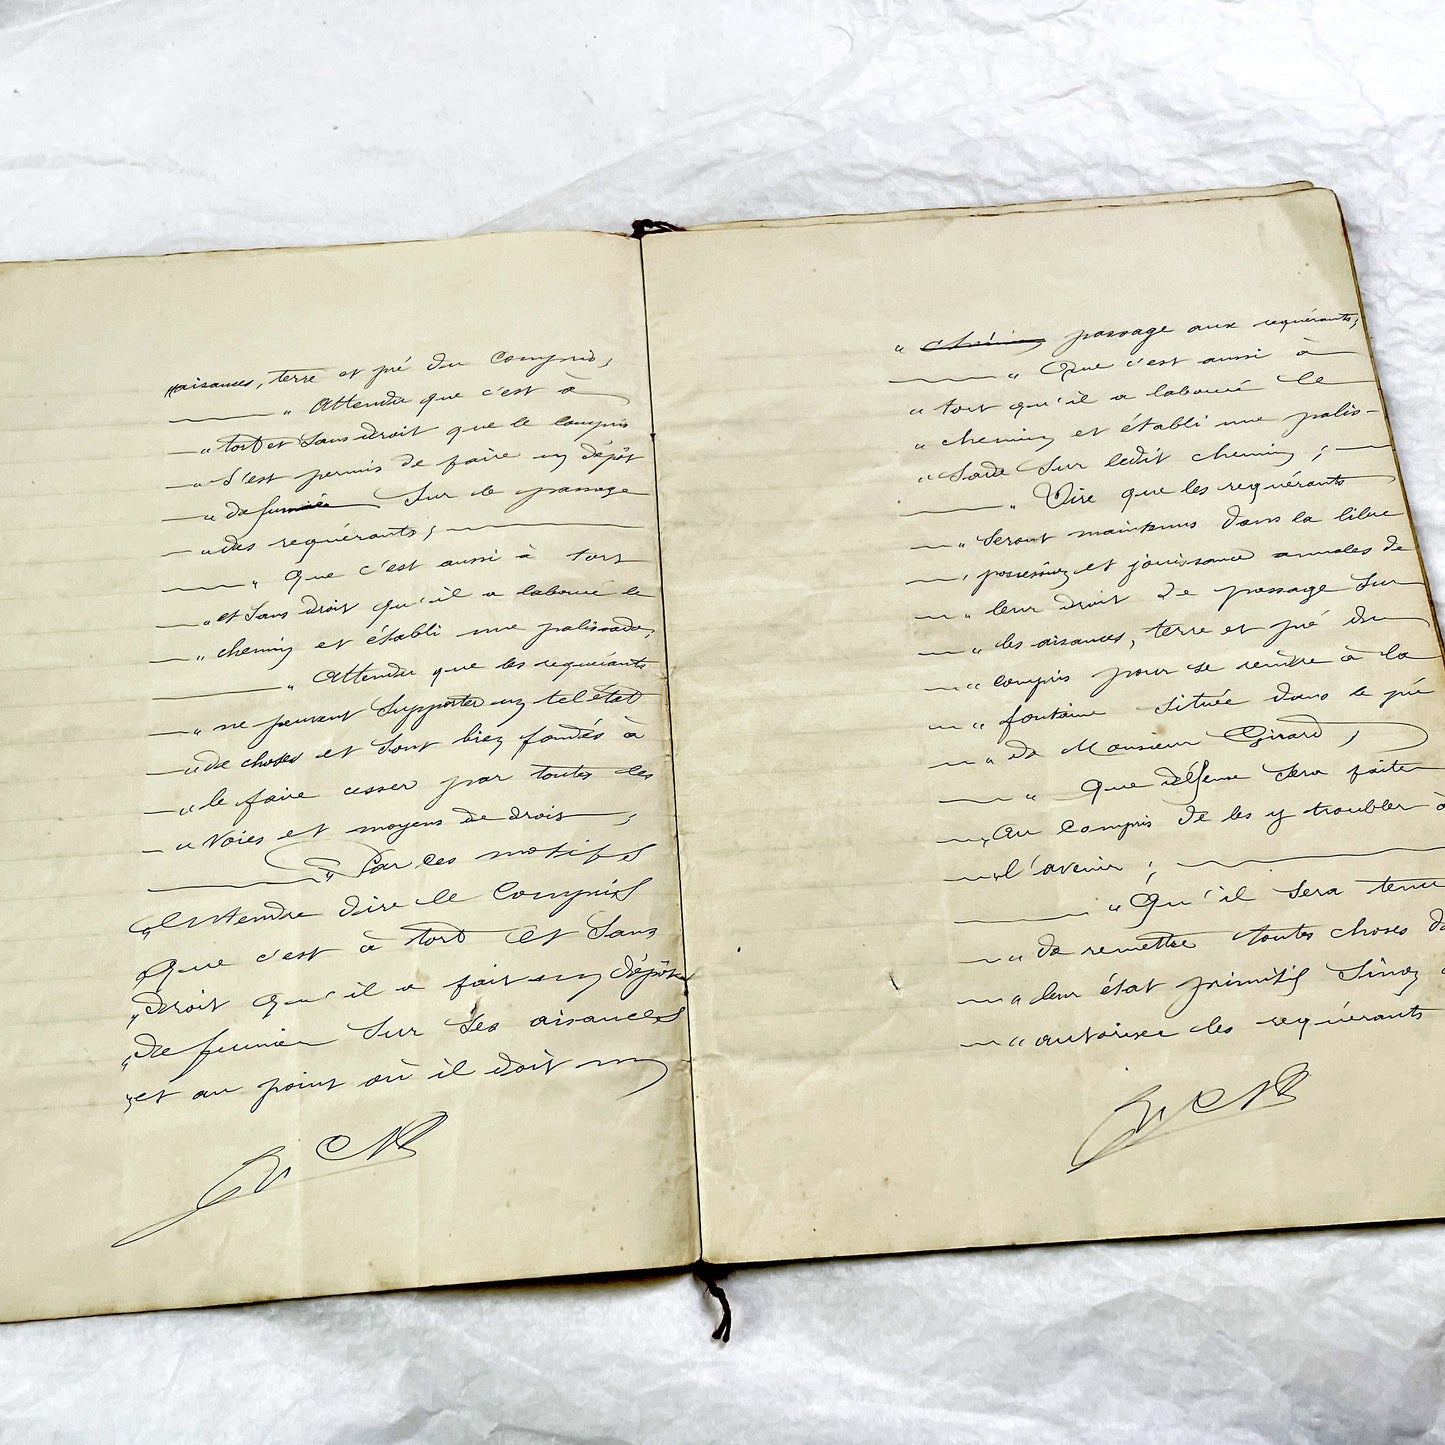 "aisances, terre et pré du compris;
" Attendu que c'est à
" tort et sans droit que le compris
" s'est permis de faire un dépôt
" de fumier sur le passage
" des requérants;
" Que c'est aussi à tort
" et sans droit qu'il a labouré le
" chemin et établi une palissade;
" Attendu que les requérants
" ne peuvent supporter un tel état
" de choses et sont bien fondés à
" le faire cesser par toutes les
" voies et moyens de droit;
" Par ces motifs
" Entendre dire le compris
" Que c'est à tort et sans
" droit qu'il a fait un dépôt
" de fumier sur ses aisances
" et au point où il doit un
" chemin passage aux requérants;
" Que c'est aussi à
" tort qu'il a labouré le
" chemin et établi une palis-
" sade sur ledit chemin;
" Dire que les requérants
" seront maintenus dans la libre
" possession et jouissance annales de
" leur droit de passage sur
" les aisances, terre et pré du
" compris pour se rendre à la
" fontaine située dans le pré
" de Monsieur Girard;
" Que défense sera faite
" au compris de les y troubler à
" l'avenir;
" Qu'il sera tenu
" de remettre toutes choses de
" leur état primitif sinon
" autoriser les requérants